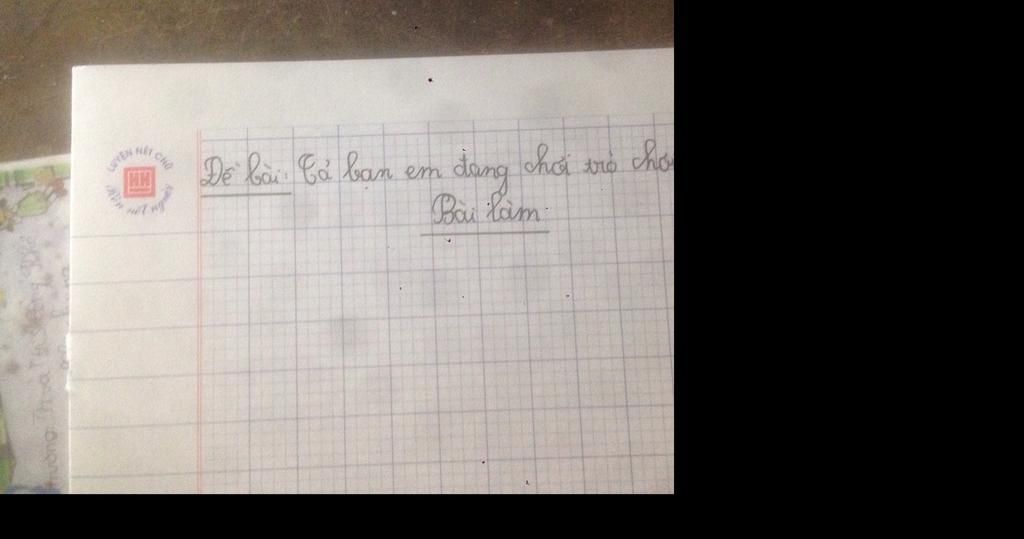 LUYỆN NÉT CHỮ
RÈN NẾT NGƯỜI
Đề bài: Tả bạn em đang chơi trò chơ
Bài làm